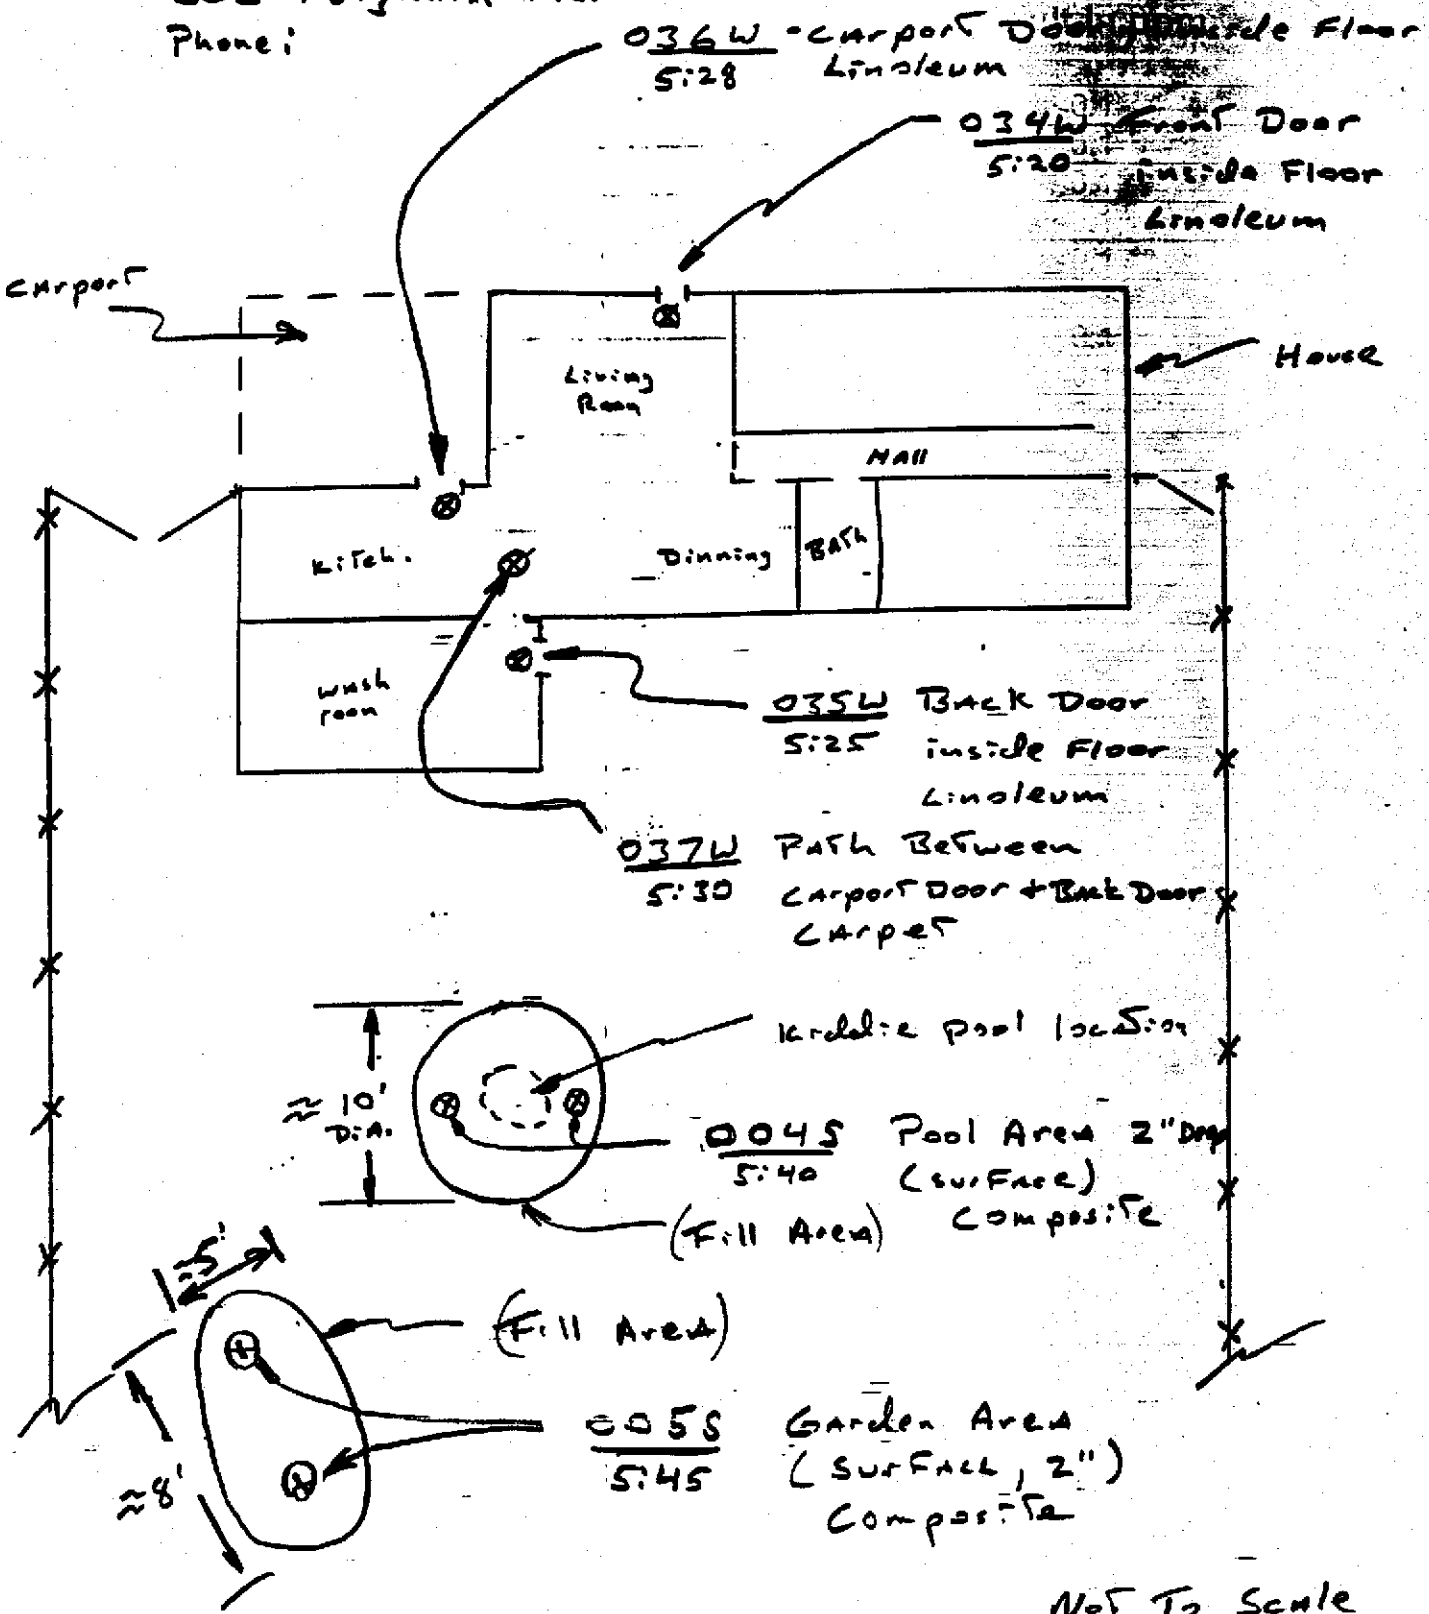 Phone:
036W - Carport Door inside Floor
5:28 Linoleum
034W Front Door
5:20 inside Floor
Linoleum
Carport
House
Living
Room
Hall
Kitch.
Dinning
Bath
Wash
room
035W Back Door
5:25 inside Floor
Linoleum
037W Path Between
5:30 Carport Door + Back Door
Carpet
Kiddie pool location
≈ 10'
DIA.
004S Pool Area 2" Deep
5:40 (surface)
Composite
(Fill Area)
≈5'
(Fill Area)
005S Garden Area
5:45 (Surface, 2")
Composite
≈8'
Not To Scale